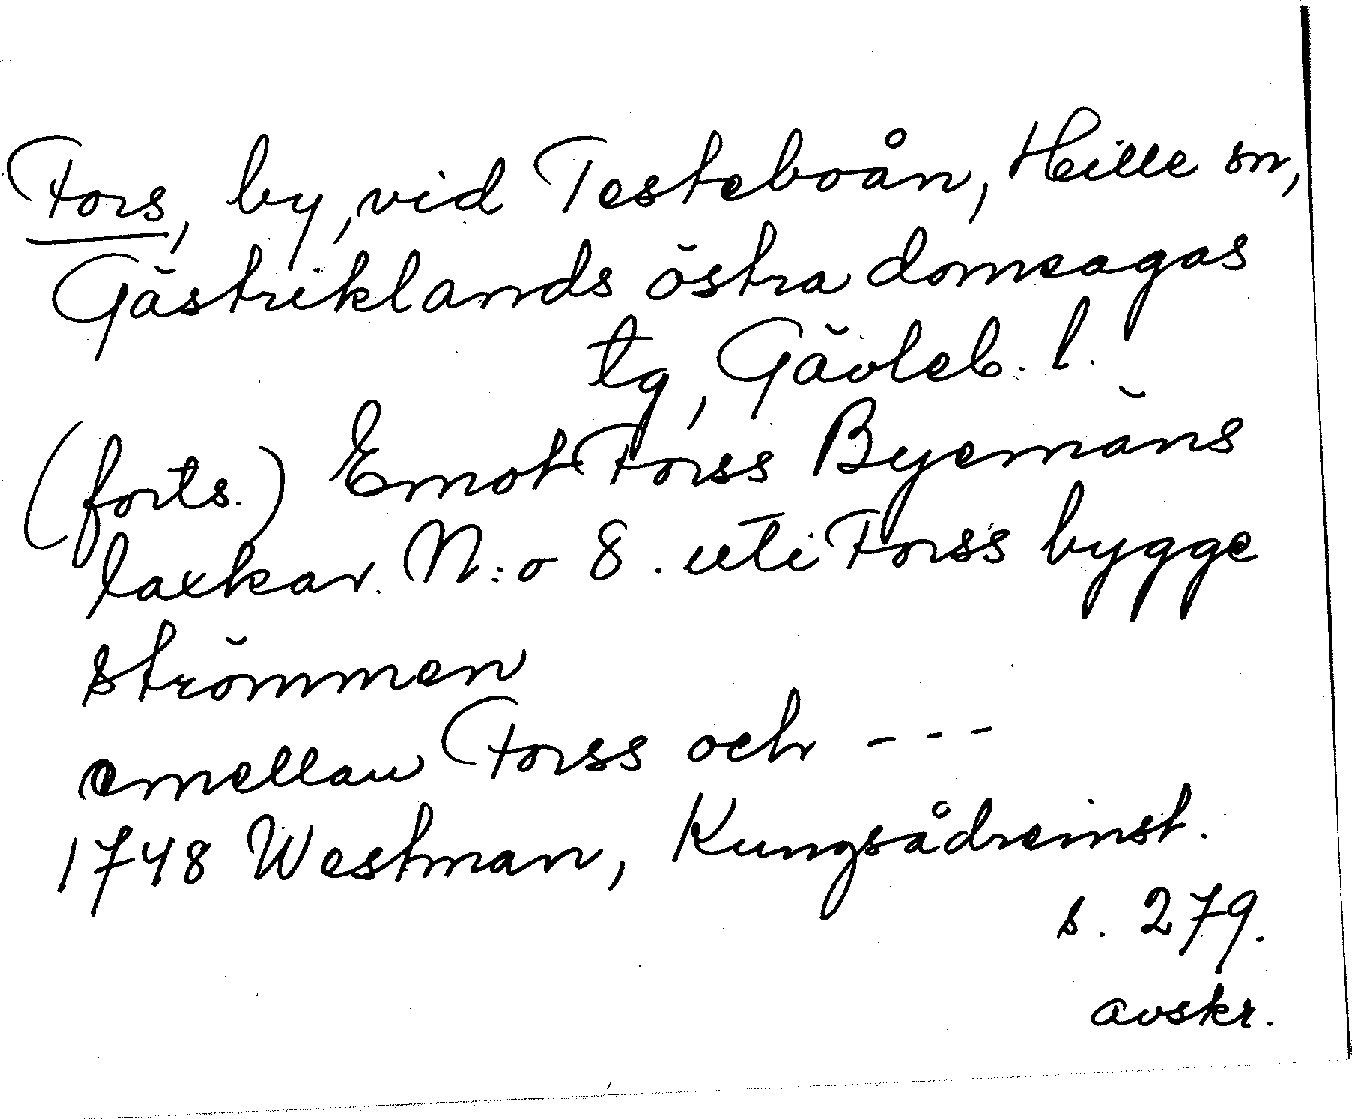 Fors, by, vid Testeboån, Hille sn,
Gästriklands östra domsagas
tg, Gävleb. l.
(forts.) Emot Forss Byemäns
laxkar. N:o 8. uti Forss bygge
strömmen
emellan Forss och - - -
1748 Westman, Kungsådreinst.
s. 279.
avskr.